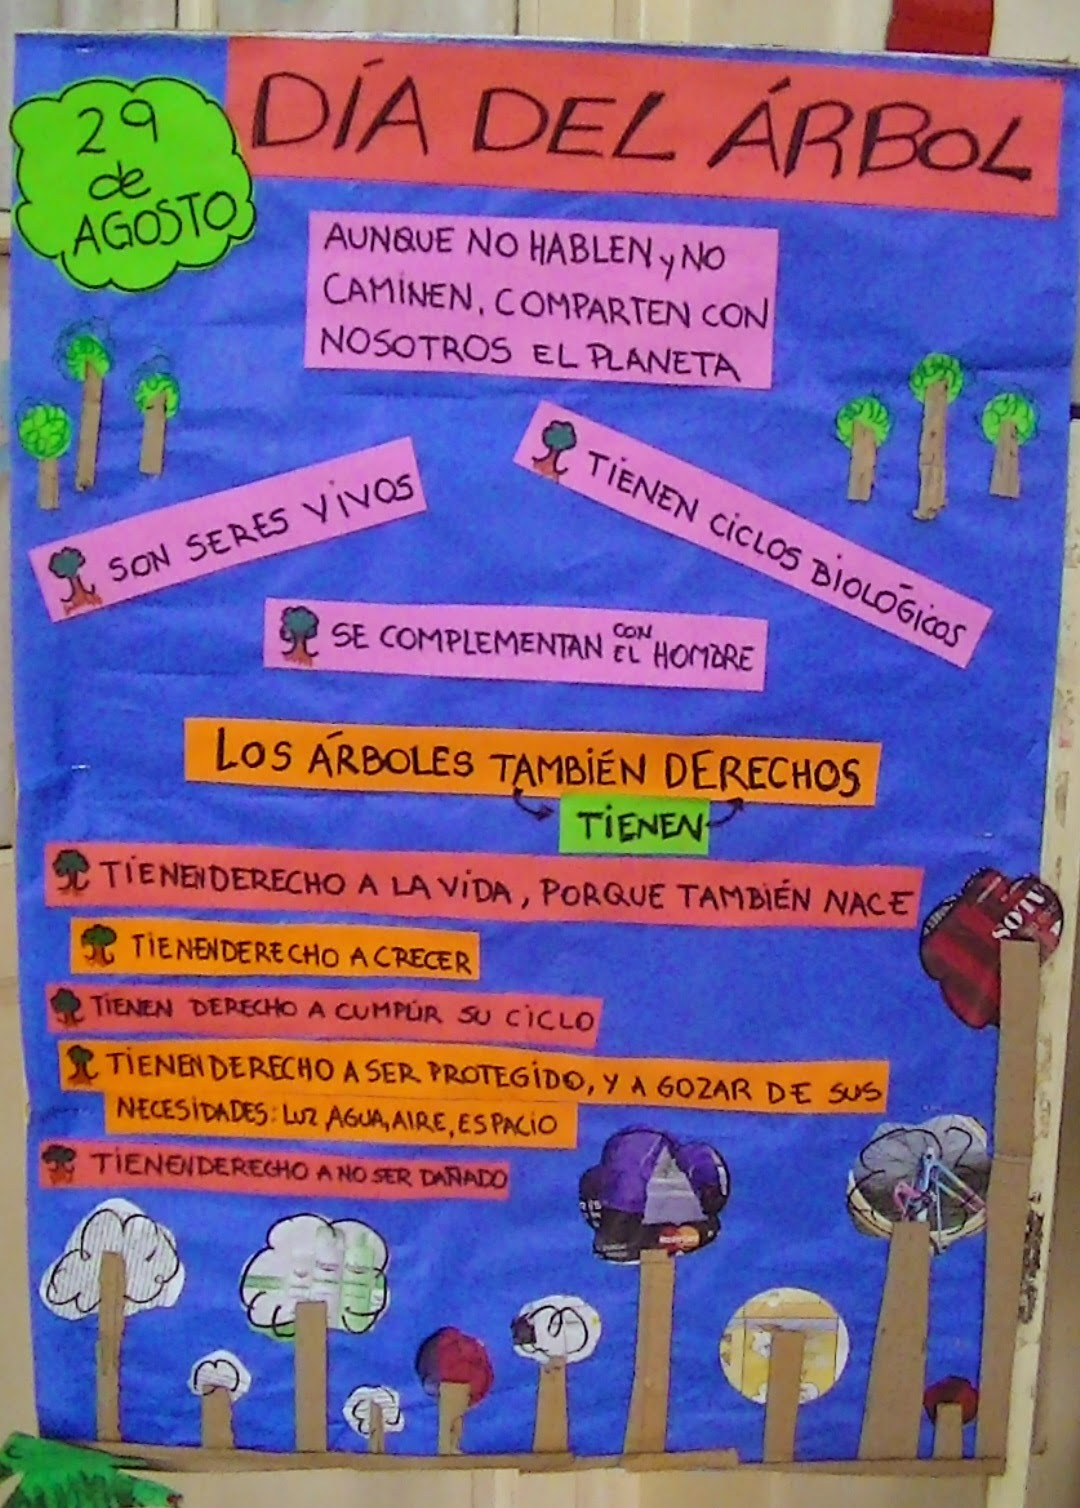 29
de
AGOSTO
DÍA DEL ÁRBOL
AUNQUE NO HABLEN y NO
CAMINEN, COMPARTEN CON
NOSOTROS EL PLANETA
SON SERES VIVOS
TIENEN CICLOS BIOLÓGICOS
SE COMPLEMENTAN CON EL HOMBRE
LOS ÁRBOLES TAMBIÉN DERECHOS
TIENEN
TIENEN DERECHO A LA VIDA, PORQUE TAMBIÉN NACE
TIENEN DERECHO A CRECER
TIENEN DERECHO A CUMPLIR SU CICLO
TIENEN DERECHO A SER PROTEGIDO, Y A GOZAR DE SUS
NECESIDADES: LUZ, AGUA, AIRE, ESPACIO
TIENEN DERECHO A NO SER DAÑADO